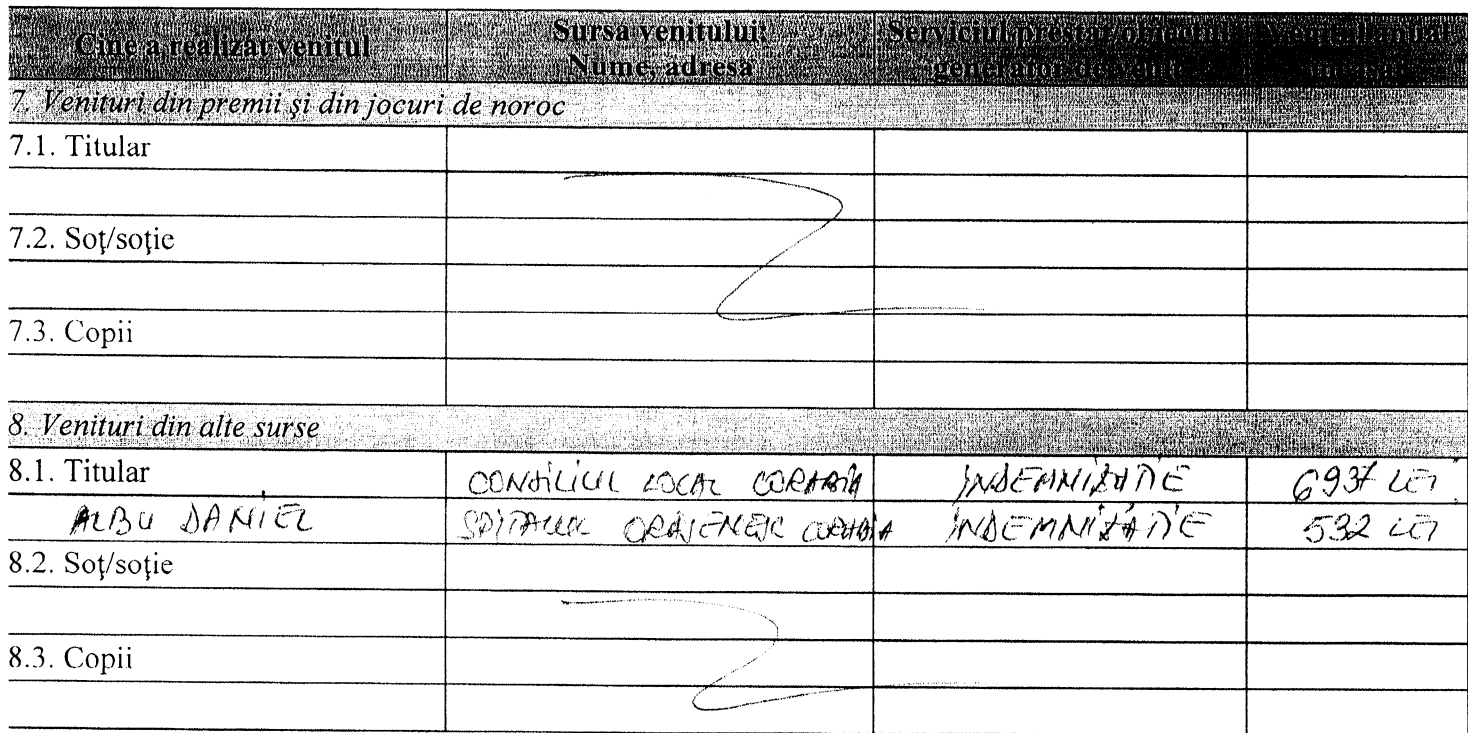 Cine a realizat venitul
Sursa venitului:
Nume, adresa
Serviciul prestat/obiectul
generator de venit
Venitul anual
încasat
7. Venituri din premii și din jocuri de noroc
7.1. Titular
7.2. Soţ/soţie
7.3. Copii
8. Venituri din alte surse
8.1. Titular CONSILIUL LOCAL CORABIA INDEMNIZATIE 6937 LEI
ALBU DANIEL SPITALUL ORĂȘENESC CORABIA INDEMNIZATIE 532 LEI
8.2. Soţ/soţie
8.3. Copii